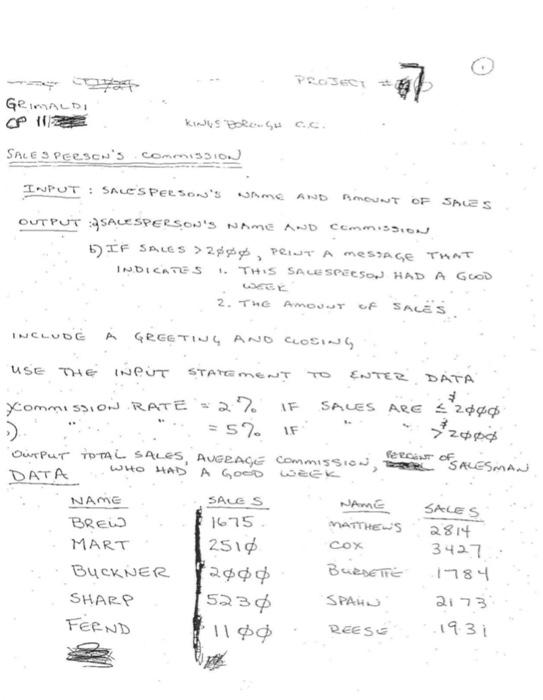 1
PROJECT # 7
GRIMALDI
CP 11
KINGSBOROUGH C.C.
SALESPERSON'S COMMISSION
INPUT : SALESPERSON'S NAME AND AMOUNT OF SALES
OUTPUT : a) SALESPERSON'S NAME AND COMMISSION
b) IF SALES > 2000, PRINT A MESSAGE THAT
INDICATES 1. THIS SALESPERSON HAD A GOOD
WEEK
2. THE AMOUNT OF SALES.
INCLUDE A GREETING AND CLOSING
USE THE INPUT STATEMENT TO ENTER DATA
COMMISSION RATE = 2% IF SALES ARE ≤ $2000
" " = 5% IF " " > $2000
OUTPUT TOTAL SALES, AVERAGE COMMISSION, PERCENT OF SALESMAN
WHO HAD A GOOD WEEK
DATA
NAME SALES NAME SALES
BREW 1675 MATTHEWS 2814
MART 2510 COX 3427
BUCKNER 2000 BURDETTE 1784
SHARP 5230 SPAHN 2173
FERND 1100 REESE 1931